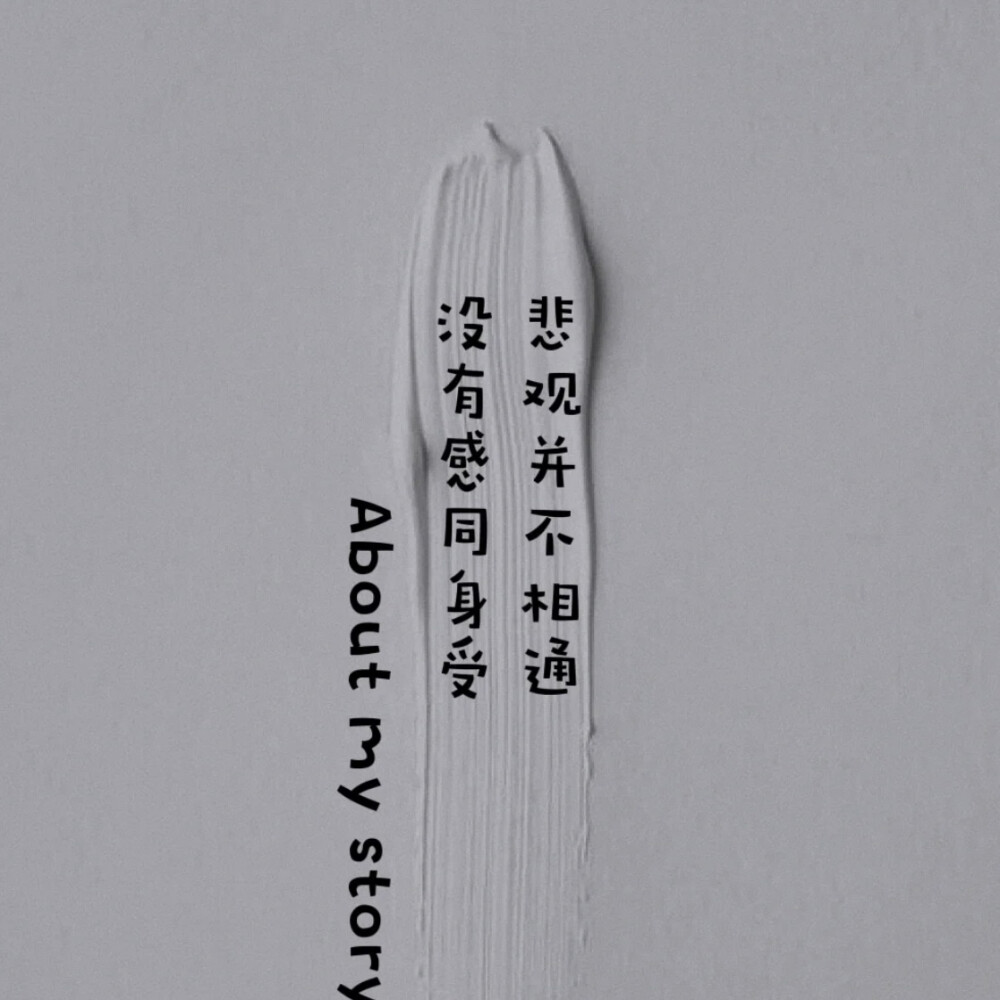 悲观并不相通
没有感同身受
About my story